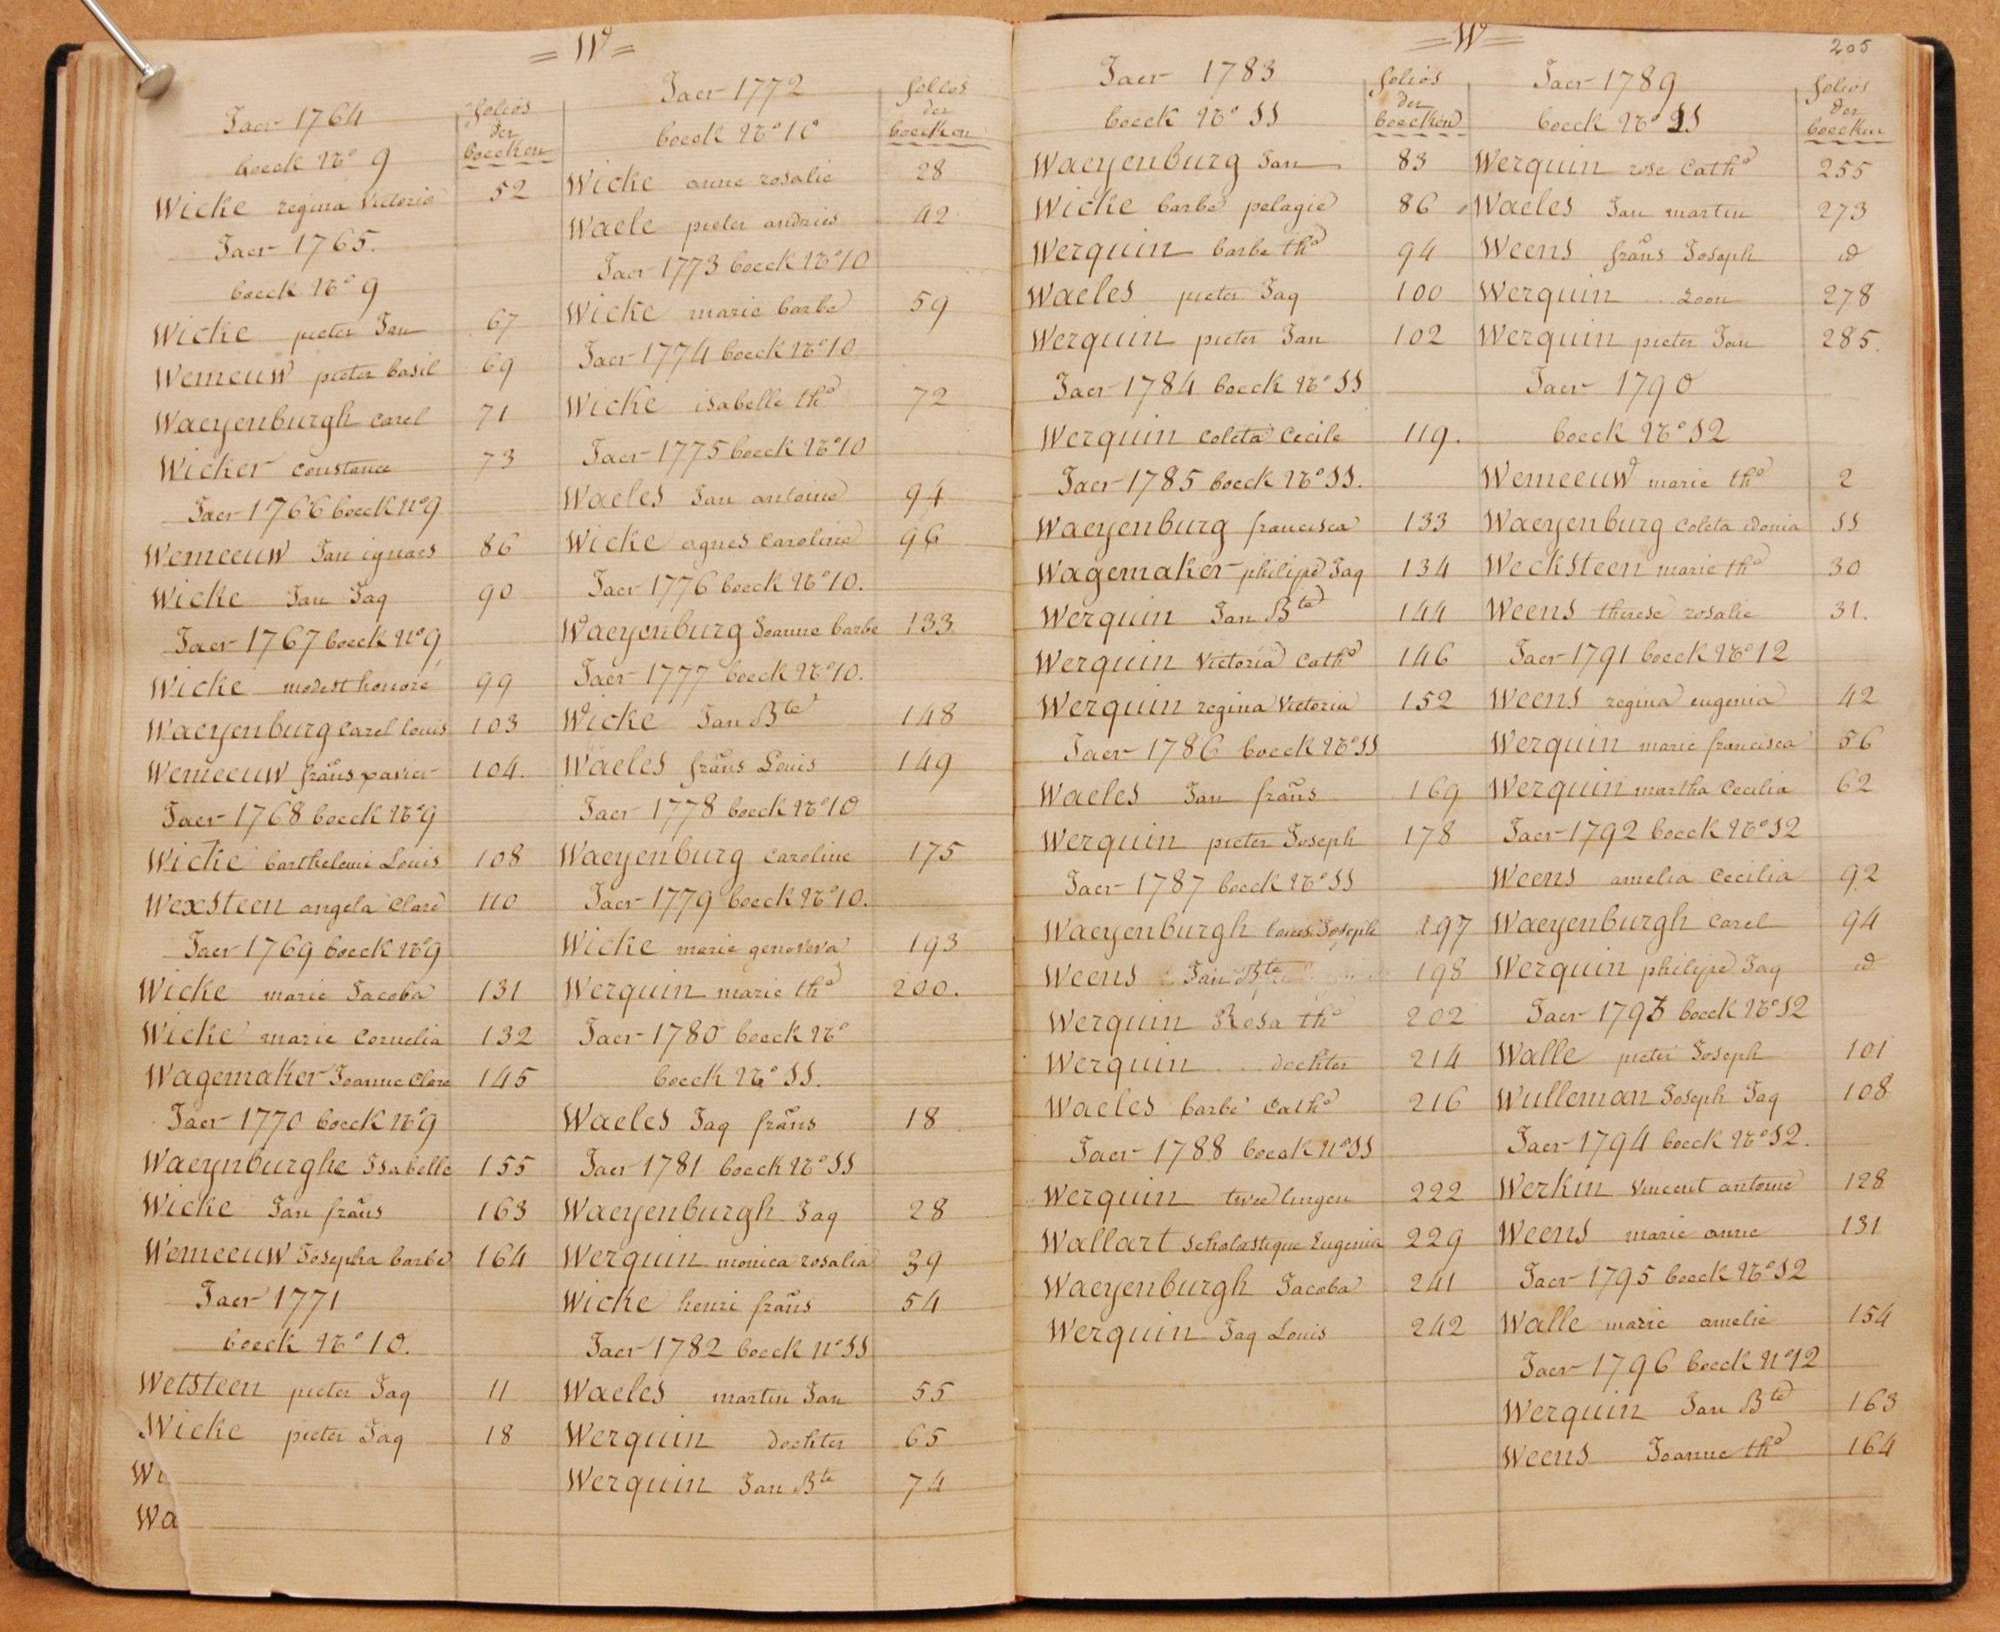 = W =
Jaer 1764
folios
der
boecken
boeck No 9
Wicke regina Victoria 52
Jaer 1765.
boeck No 9
Wicke pieter Jan 67
Wemeeuw pieter basil 69
Waeyenburgh Carel 71
Wicker Constance 73
Jaer 1766 boeck No 9
Wemeeuw Jan ignaes 86
Wicke Jan Jaq 90
Jaer 1767 boeck No 9
Wicke modest honoré 99
Waeyenburg Carel Louis 103
Wemeeuw frans xavier 104.
Jaer 1768 boeck No 9
Wicke barthelemi Louis 108
Wexsteen angela Clare 110
Jaer 1769 boeck No 9
Wicke marie Jacoba 131
Wicke marie Cornelia 132
Wagemaker Joanne Clare 145
Jaer 1770 boeck No 9
Waeynburghe Isabelle 155
Wicke Jan frans 163
Wemeeuw Josepha barbe 164
Jaer 1771
boeck No 10.
Wetsteen pieter Jaq 11
Wicke pieter Jaq 18
Wa
Jaer 1772
folios
der
boecken
boeck No 10
Wicke anne rosalie 28
Waele pieter andries 42
Jaer 1773 boeck No 10
Wicke marie barbe 59
Jaer 1774 boeck No 10
Wicke isabelle the 72
Jaer 1775 boeck No 10
Waeles Jan antoine 94
Wicke agnes Caroline 96
Jaer 1776 boeck No 10.
Waeyenburg Joanne barbe 133
Jaer 1777 boeck No 10.
Wicke Jan Bte 148
Waeles frans Louis 149
Jaer 1778 boeck No 10
Waeyenburg Caroline 175
Jaer 1779 boeck No 10.
Wicke marie genoveva 193
Werquin marie the 200.
Jaer 1780 boeck No
boeck No 11.
Waeles Jaq frans 18
Jaer 1781 boeck No 11
Waeyenburgh Jaq 28
Werquin monica rosalia 39
Wicke henri frans 54
Jaer 1782 boeck No 11
Waeles martin Jan 55
Werquin dochter 65
Werquin Jan Bte 74
= W =
205
Jaer 1783
folios
der
boecken
boeck No 11
Waeyenburg Jan 83
Wicke barbe pelagie 86
Werquin barbe the 94
Waeles pieter Jaq 100
Werquin pieter Jan 102
Jaer 1784 boeck No 11
Werquin Coleta Cecile 119.
Jaer 1785 boeck No 11.
Waeyenburg francisca 133
Wagemaker philipe Jaq 134
Werquin Jan Bte 144
Werquin Victoria Cathe 146
Werquin regina Victoria 152
Jaer 1786 boeck No 11
Waeles Jan frans 169
Werquin pieter Joseph 178
Jaer 1787 boeck No 11
Waeyenburgh Louis Joseph 197
Weens Jan Bte 198
Werquin Rosa the 202
Werquin .. dochter 214
Waeles barbe Cathe 216
Jaer 1788 boeck No 11
Werquin tweelingen 222
Wallart Scholastique Eugenia 229
Waeyenburgh Jacoba 241
Werquin Jaq Louis 242
Jaer 1789
folios
der
boecken
boeck No 11
Werquin rose Cathe 255
Waeles Jan martin 273
Weens frans Joseph id
Werquin .. zoon 278
Werquin pieter Jan 285.
Jaer 1790
boeck No 12
Wemeeuw marie the 2
Waeyenburg Coleta idonia 11
Wecksteen marie the 30
Weens therese rosalie 31.
Jaer 1791 boeck No 12
Weens regina eugenia 42
Werquin marie francisca 56
Werquin martha Cecilia 62
Jaer 1792 boeck No 12
Weens amelia Cecilia 92
Waeyenburgh Carel 94
Werquin philipe Jaq id
Jaer 1793 boeck No 12
Walle pieter Joseph 101
Wulleman Joseph Jaq 108
Jaer 1794 boeck No 12.
Werkin Vincent antoine 128
Weens marie anne 131
Jaer 1795 boeck No 12
Walle marie amelie 154
Jaer 1796 boeck No 12
Werquin Jan Bte 163
Weens Joanne the 164